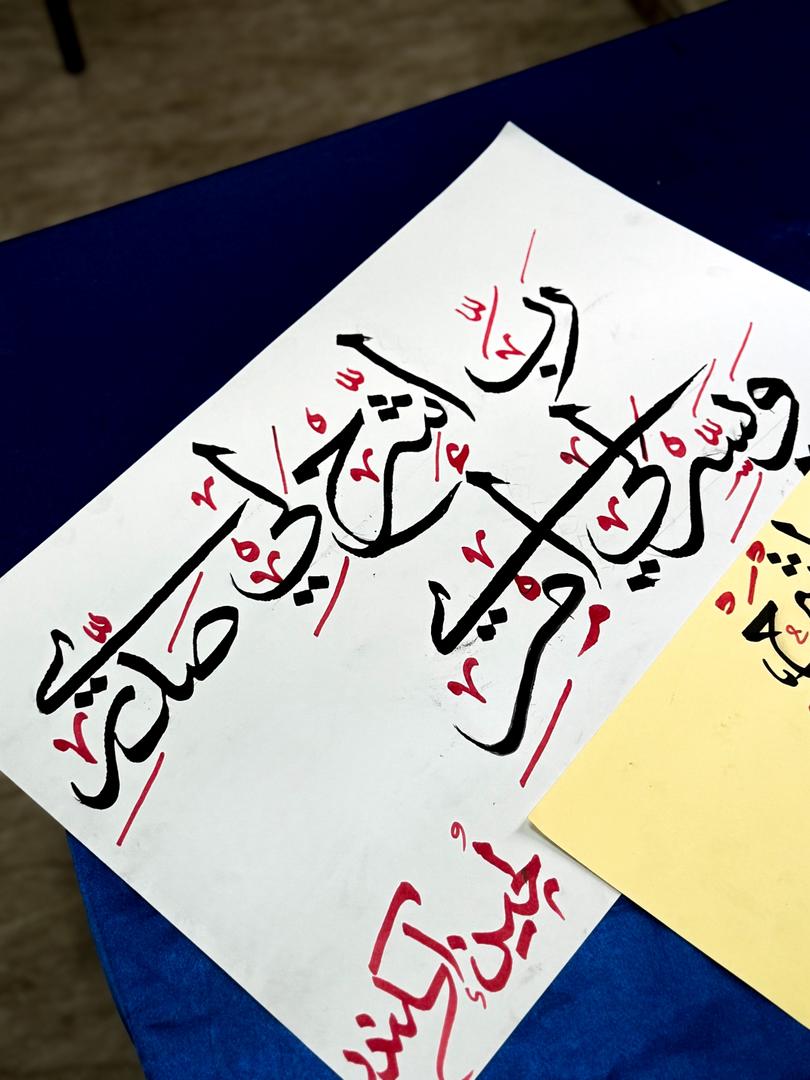 رَبِّ اشْرَحْ لِي صَدْرِي
وَيَسِّرْ لِي أَمْرِي
لُجين